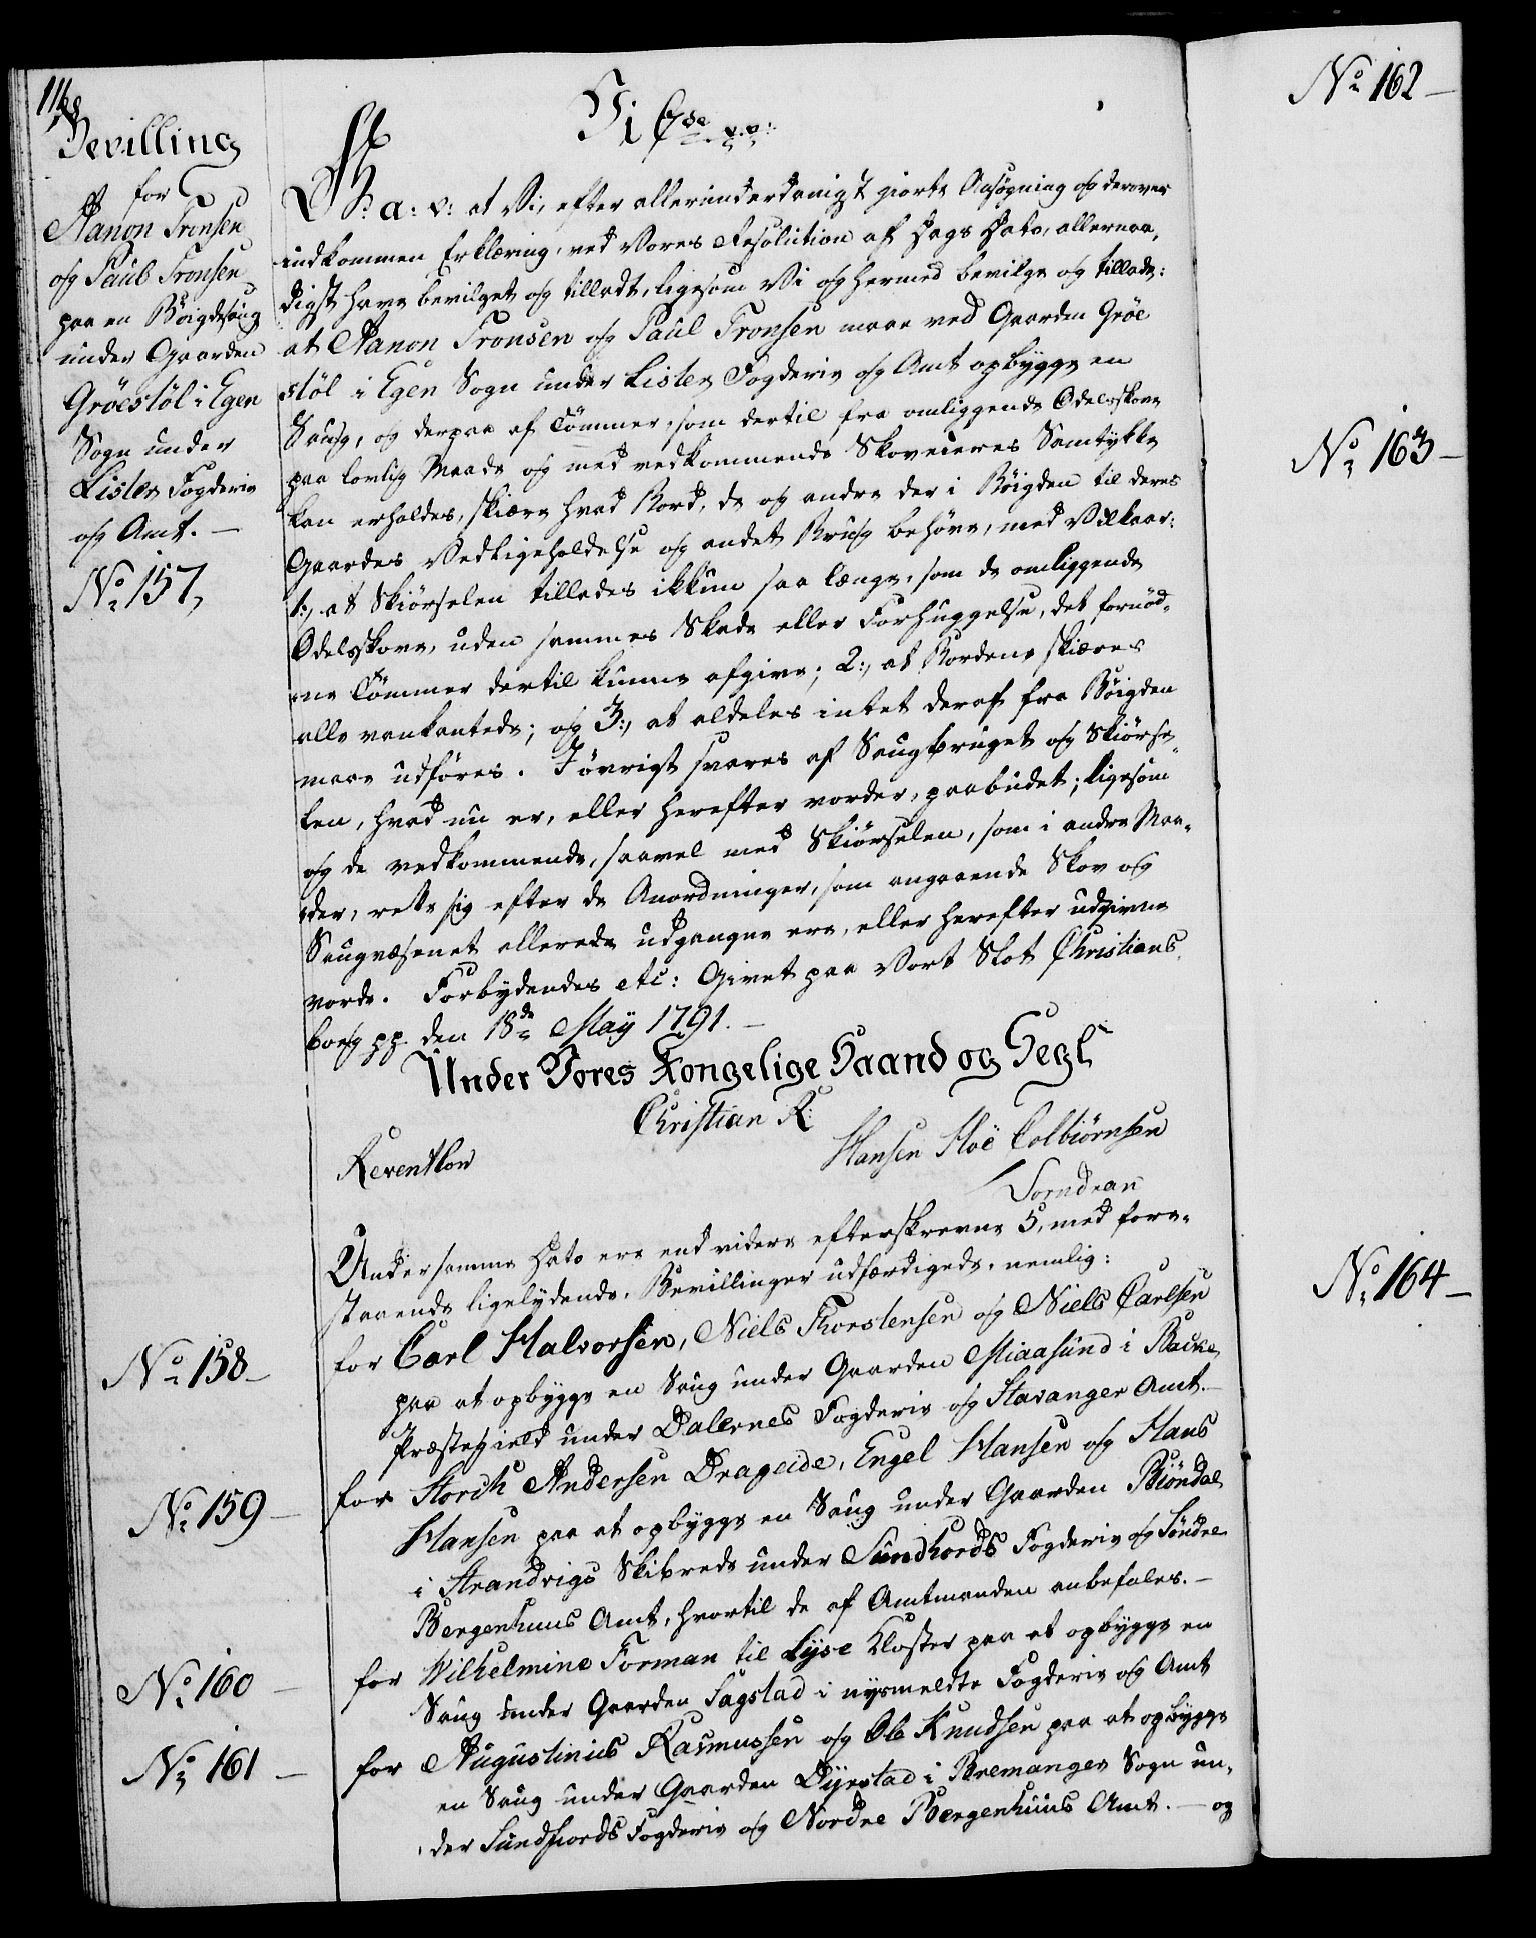 Bevilling
for
Aanon Tronsen
og Paul Tronsen
paa en Böigdesaug
under Gaarden
Gröestöl i Egen
Sogn under
Lister Fogderie
og Amt. —
No 157,
Vi C 7de p.p:
G: a: v: at Vi, efter allerunderdanigst giorte Ansögning og derover
indkommen Erklæring, ved Vores Resolution af Dags Dato, allernaa-
digst have bevilget og tilladt, ligesom Vi og hermed bevilge og tillade:
at Aanon Tronsen og Paul Tronsen maae ved Gaarden Gröe
stöl i Egen Sogn under Lister Fogderie og Amt opbygge en
Saug, og derpaa af Tömmer, som dertil fra omliggende Odelsskove
paa lovlig Maade og med vedkommende Skoveieres Samtykke
kan erholdes, skiære hvad Bord, de og andre der i Böigden til deres
Gaardes Vedligeholdelse og andet Brug behöve, med Vilkaar:
1:, at Skiörselen tillades ikkun saa længe, som de omliggende
Odelsskove, uden sammes Skade eller Forhuggelse, det fornöd-
ne Tömmer dertil kunne afgive; 2:, at Bordene skiæres
alle vankantede; og 3:, at aldeles intet deraf fra Böigden
maae udföres. I övrigt svares af Saugbruget og Skiörse-
len, hvad nu er, eller herefter vorder, paabudet; ligesom
og de vedkommende, saavel med Skiörselen, som i andre Maa-
der, rette sig efter de Anordninger, som angaaende Skov og
Saugvæsenet allerede udgangne ere, eller herefter udgivne
vorde. Forbydendes etc: Givet paa Vort Slot Christians-
borg pp. den 18de Maÿ 1791. —
Under Vores Kongelige Haand og Segl
Christian R:
Reventlow
Hansen Hoë Colbiörnsen
/ Torndean
Under samme Dato ere end videre efterskrevne 5, med fore-
staaende ligelydende, Bevillinger udfærdigede, nemlig:
No 158 —
for Carl Halvorsen, Niels Thorstensen og Niels Carlsen
paa at opbygge en Saug under Gaarden Miaasund i Backe
Præstegield under Dalernes Fogderie og Stavanger Amt. —
No 159 —
for Storch Andersen Drageide, Engel Hansen og Hans
Hansen paa at opbygge en Saug under Gaarden Biöndal
i Strandvigs Skibrede under Sundhords Fogderie og Söndre
Bergenhuus Amt, hvortil de af Amtmanden anbefales. —
No 160 —
for Wilhelmine Forman til Lyse Kloster paa at opbygge en
Saug under Gaarden Sagstad i nysmeldte Fogderie og Amt
No 161 —
for Augustinius Rasmussen og Ole Knudsen paa at opbygge
en Saug under Gaarden Dÿrstad i Bremanger Sogn un-
der Sundfiords Fogderie og Nordre Bergenhuus Amt. — og
No 162 —
No 163 —
No 164 —